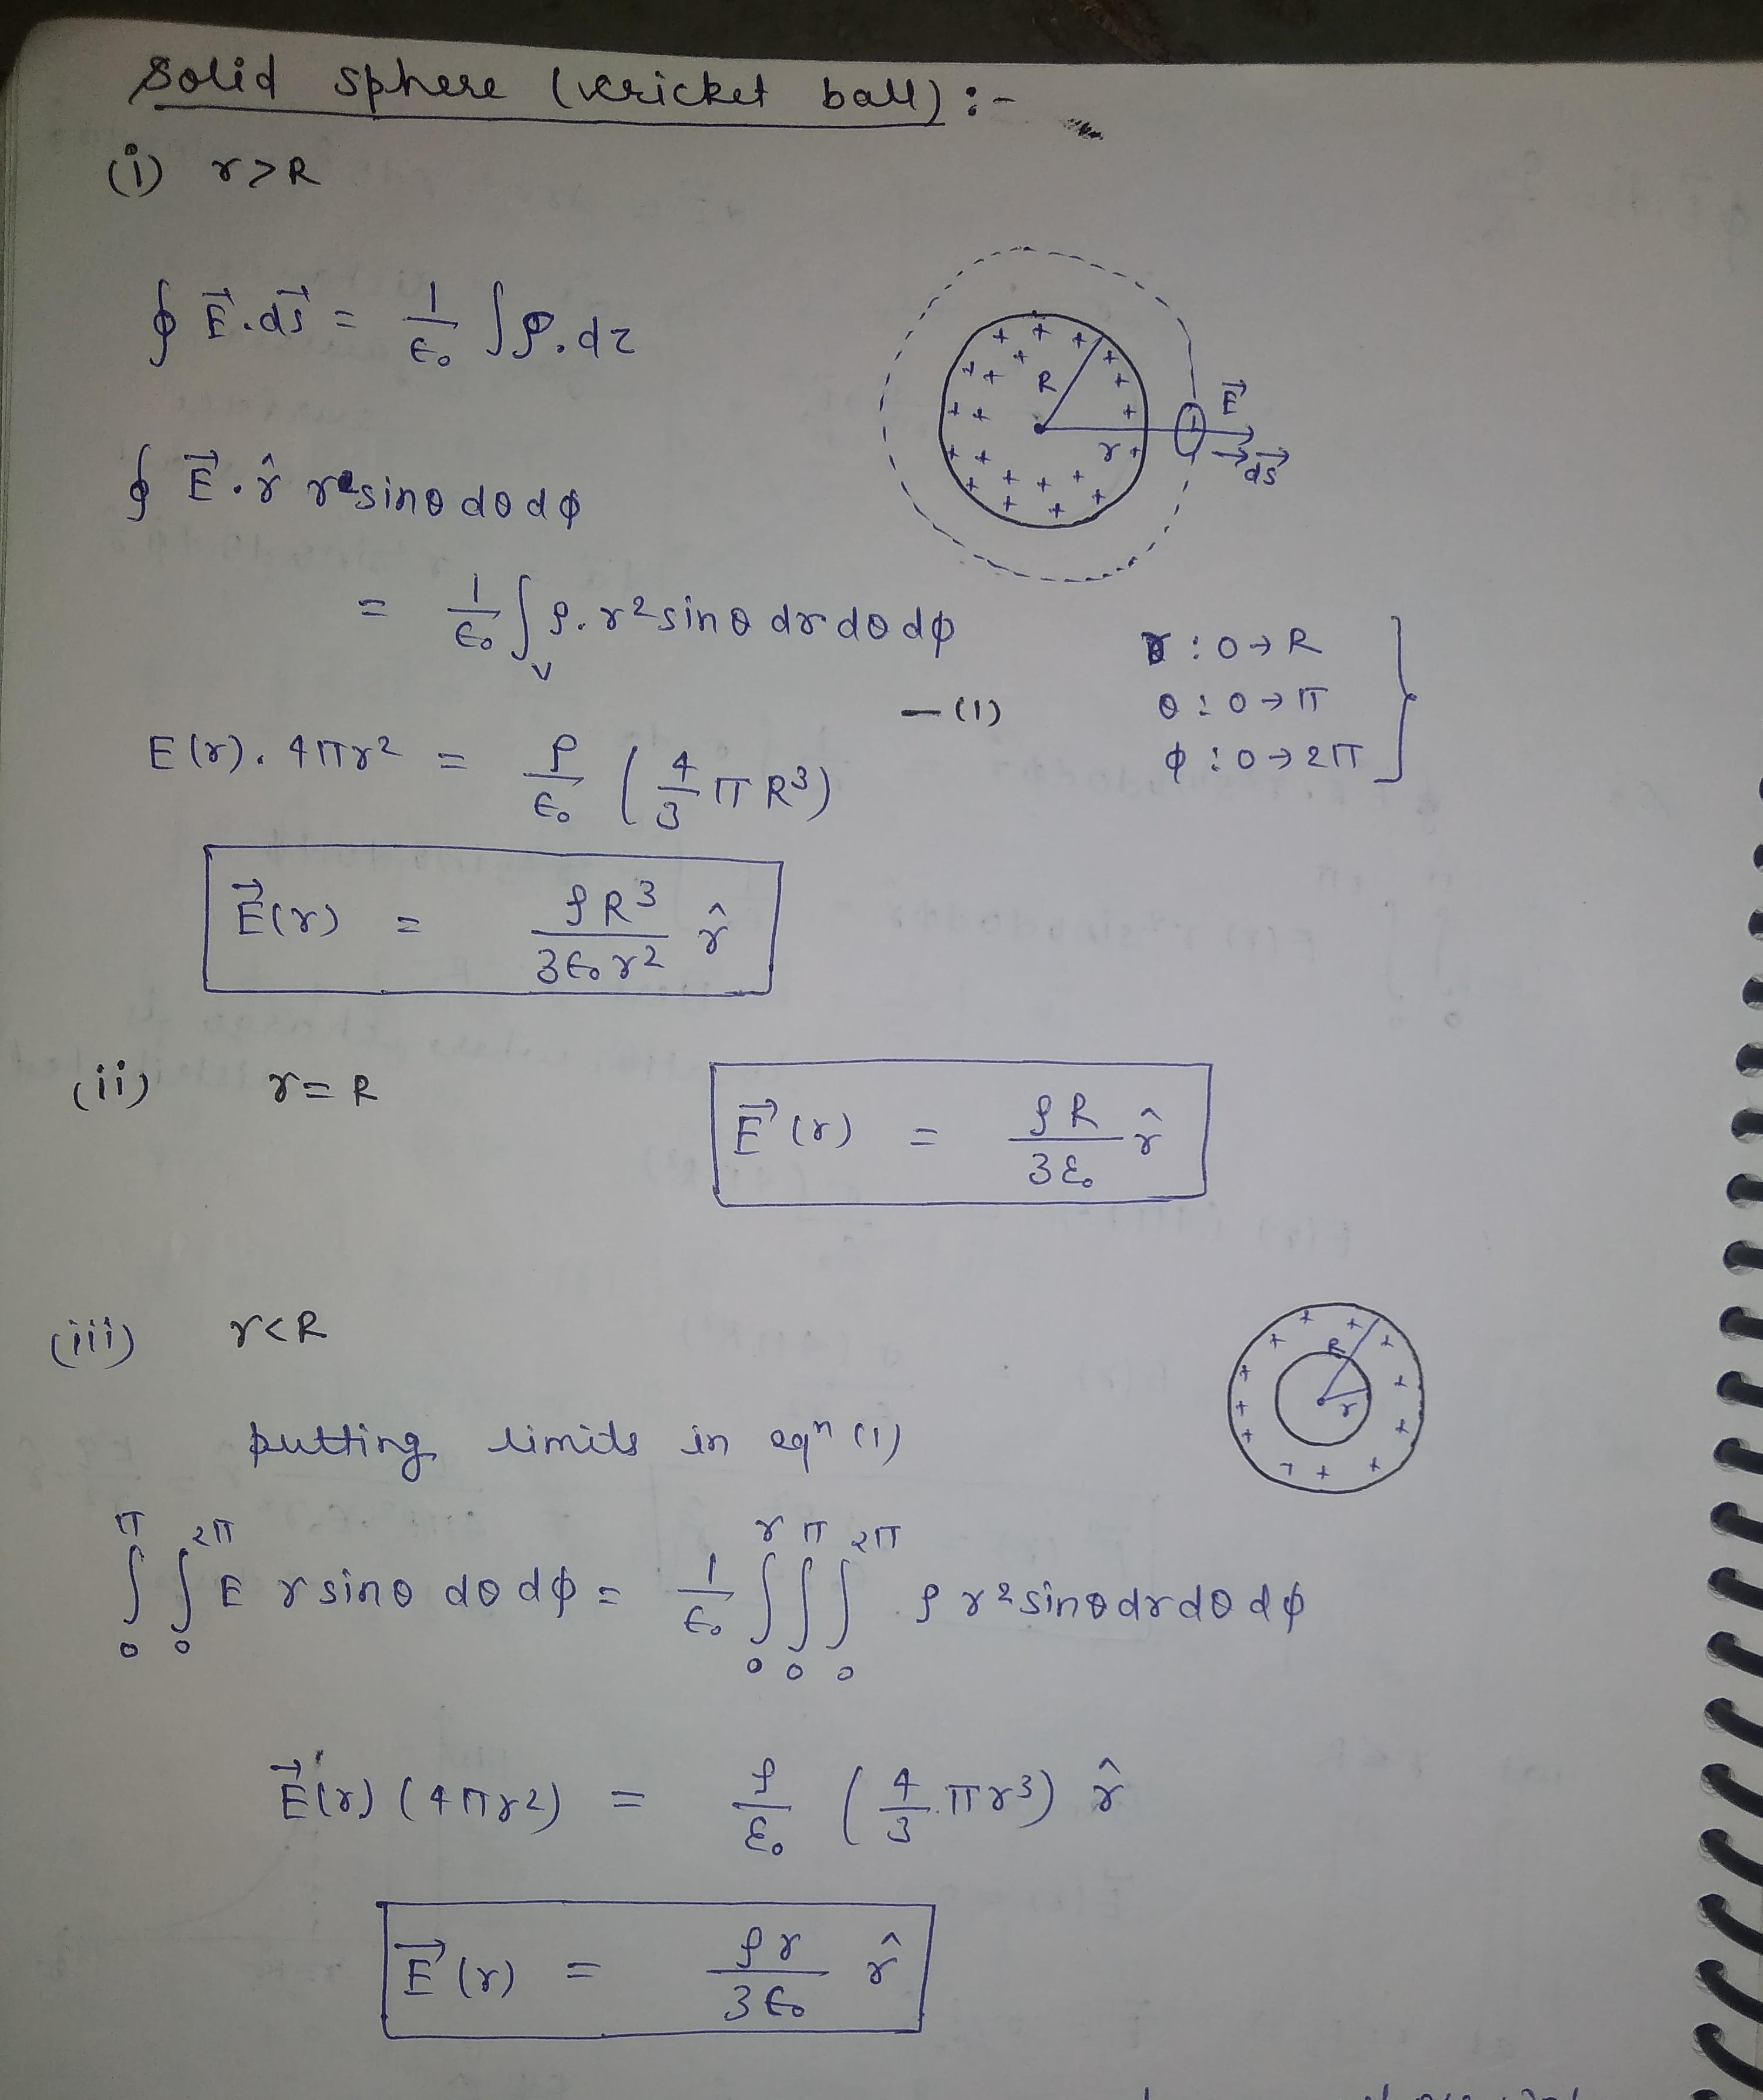 Solid sphere (cricket ball) :-
(i) r>R
∮ E⃗.ds⃗ = 1/ϵ₀ ∫ρ.dτ
R
r
E⃗
ds⃗
∮ E⃗.r̂ r²sinθdθdϕ
= 1/ϵ₀ ∫ᵥ ρ.r²sinθ dr dθ dϕ
r : 0→R
θ : 0→π
ϕ : 0→2π
—(1)
E(r). 4πr² = ρ/ϵ₀ (4/3 πR³)
E⃗(r) = ρR³/3ϵ₀r² r̂
(ii) r=R
E⃗(r) = ρR/3ε₀ r̂
(iii) r<R
R
r
putting limits in eqⁿ (1)
∫₀^π ∫₀^2π E r sinθ dθ dϕ = 1/ϵ₀ ∫₀^r ∫₀^π ∫₀^2π ρ r²sinθdrdθdϕ
E⃗(r) (4πr²) = ρ/ε₀ (4/3.πr³) r̂
E⃗(r) = ρr/3ϵ₀ r̂